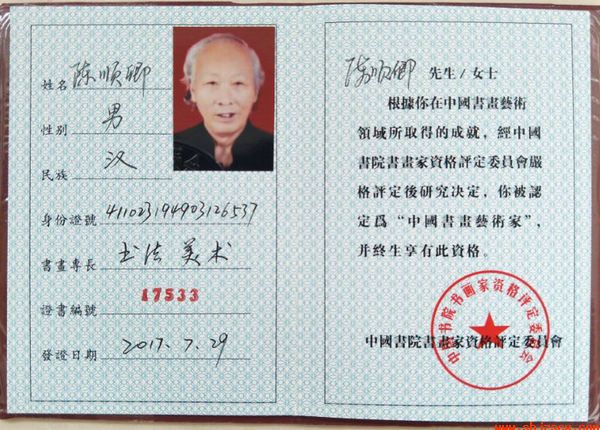 姓名 陈顺卿
性别 男
民族 汉
身份證號 411023194903126537
書畫專長 书法 美术
證書編號 17533
發證日期 2017.7.29
陈顺卿 先生/女士
根據你在中國書畫藝術
領域所取得的成就，經中國
書院書畫家資格評定委員會嚴
格評定後研究决定，你被認
定爲“中國書畫藝術家”，
并終生享有此資格。
中國書院書畫家資格評定委員會
中国书院书画家资格评定委员会